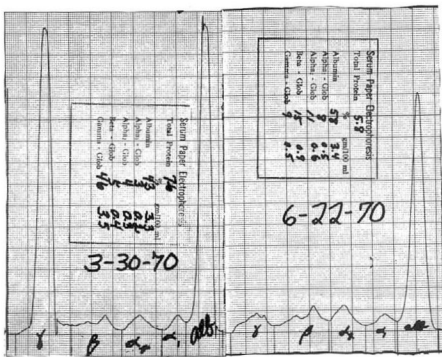 Serum Paper Electrophoresis
Total Protein 7.6
% gm/100 ml
Albumin 43 3.3
Alpha₁ - Glob
Alpha₂ - Glob 4 0.3
Beta - Glob 5 0.4
Gamma - Glob 46 3.5
3-30-70
γ β α₂ α₁ alb.
Serum Paper Electrophoresis
Total Protein 5.8
% gm/100 ml
Albumin 58 3.4
Alpha₁ - Glob 8 0.5
Alpha₂ - Glob 11 0.6
Beta - Glob 15 0.9
Gamma - Glob 9 0.5
6-22-70
γ β α₂ α₁ alb